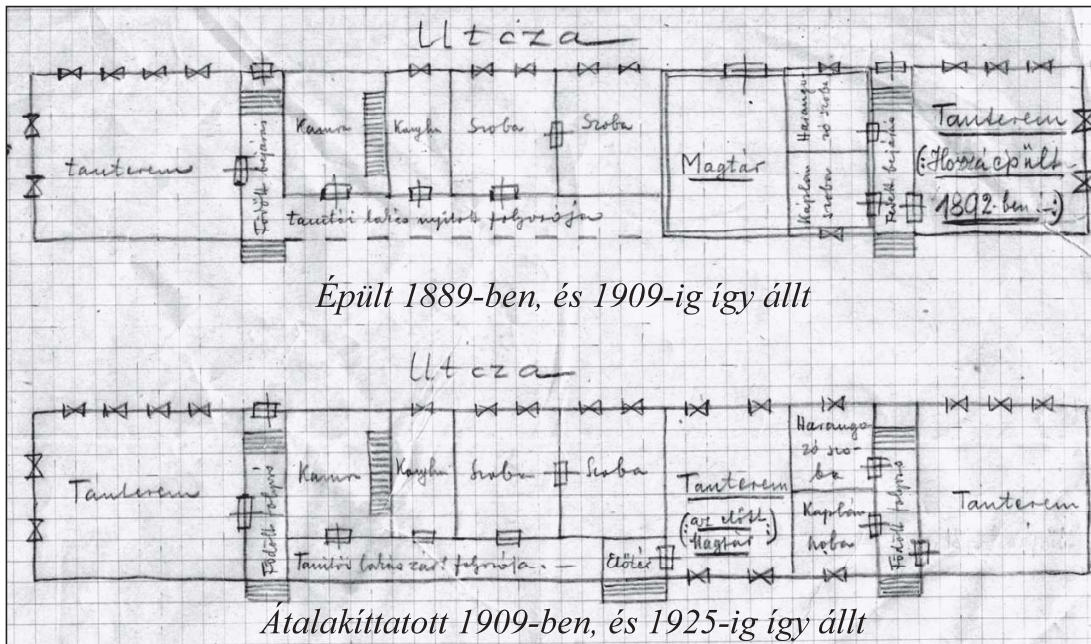 Utcza
tanterem
Födött bejárás
Kamra
Konyha
Szoba
Szoba
tanitói lakás nyitott folyosója
Magtár
Harango-
zó szoba
Káplán
szoba
Fedett bejárás
Tanterem
(:Hozzáépült
1892-ben.-:)
Épült 1889-ben, és 1909-ig így állt
Utcza
Tanterem
Födött folyosó
Kamra
Konyha
Szoba
Szoba
Tanitói lakás zárt folyosója.-
Előtér
Tanterem
(:az előtt
Magtár:)
Harango-
zó szo-
ba
Káplán
szoba
Födött folyosó
Tanterem
Átalakíttatott 1909-ben, és 1925-ig így állt